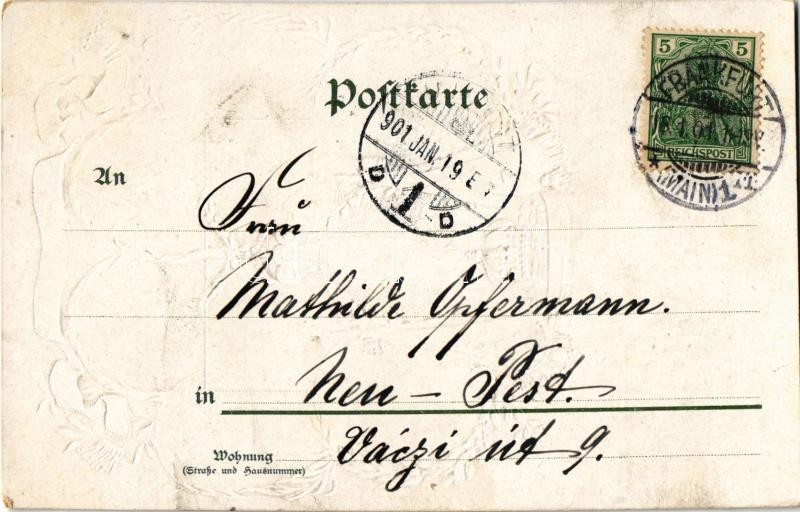 5 5
REICHSPOST
FRANKFURT
(MAIN) 1
Postkarte
901 JAN. 19 E
D 1 D
An
Frau
Mathilde Opfermann.
in Neu - Pest.
Wohnung
(Straße und Hausnummer)
Váczi út 9.